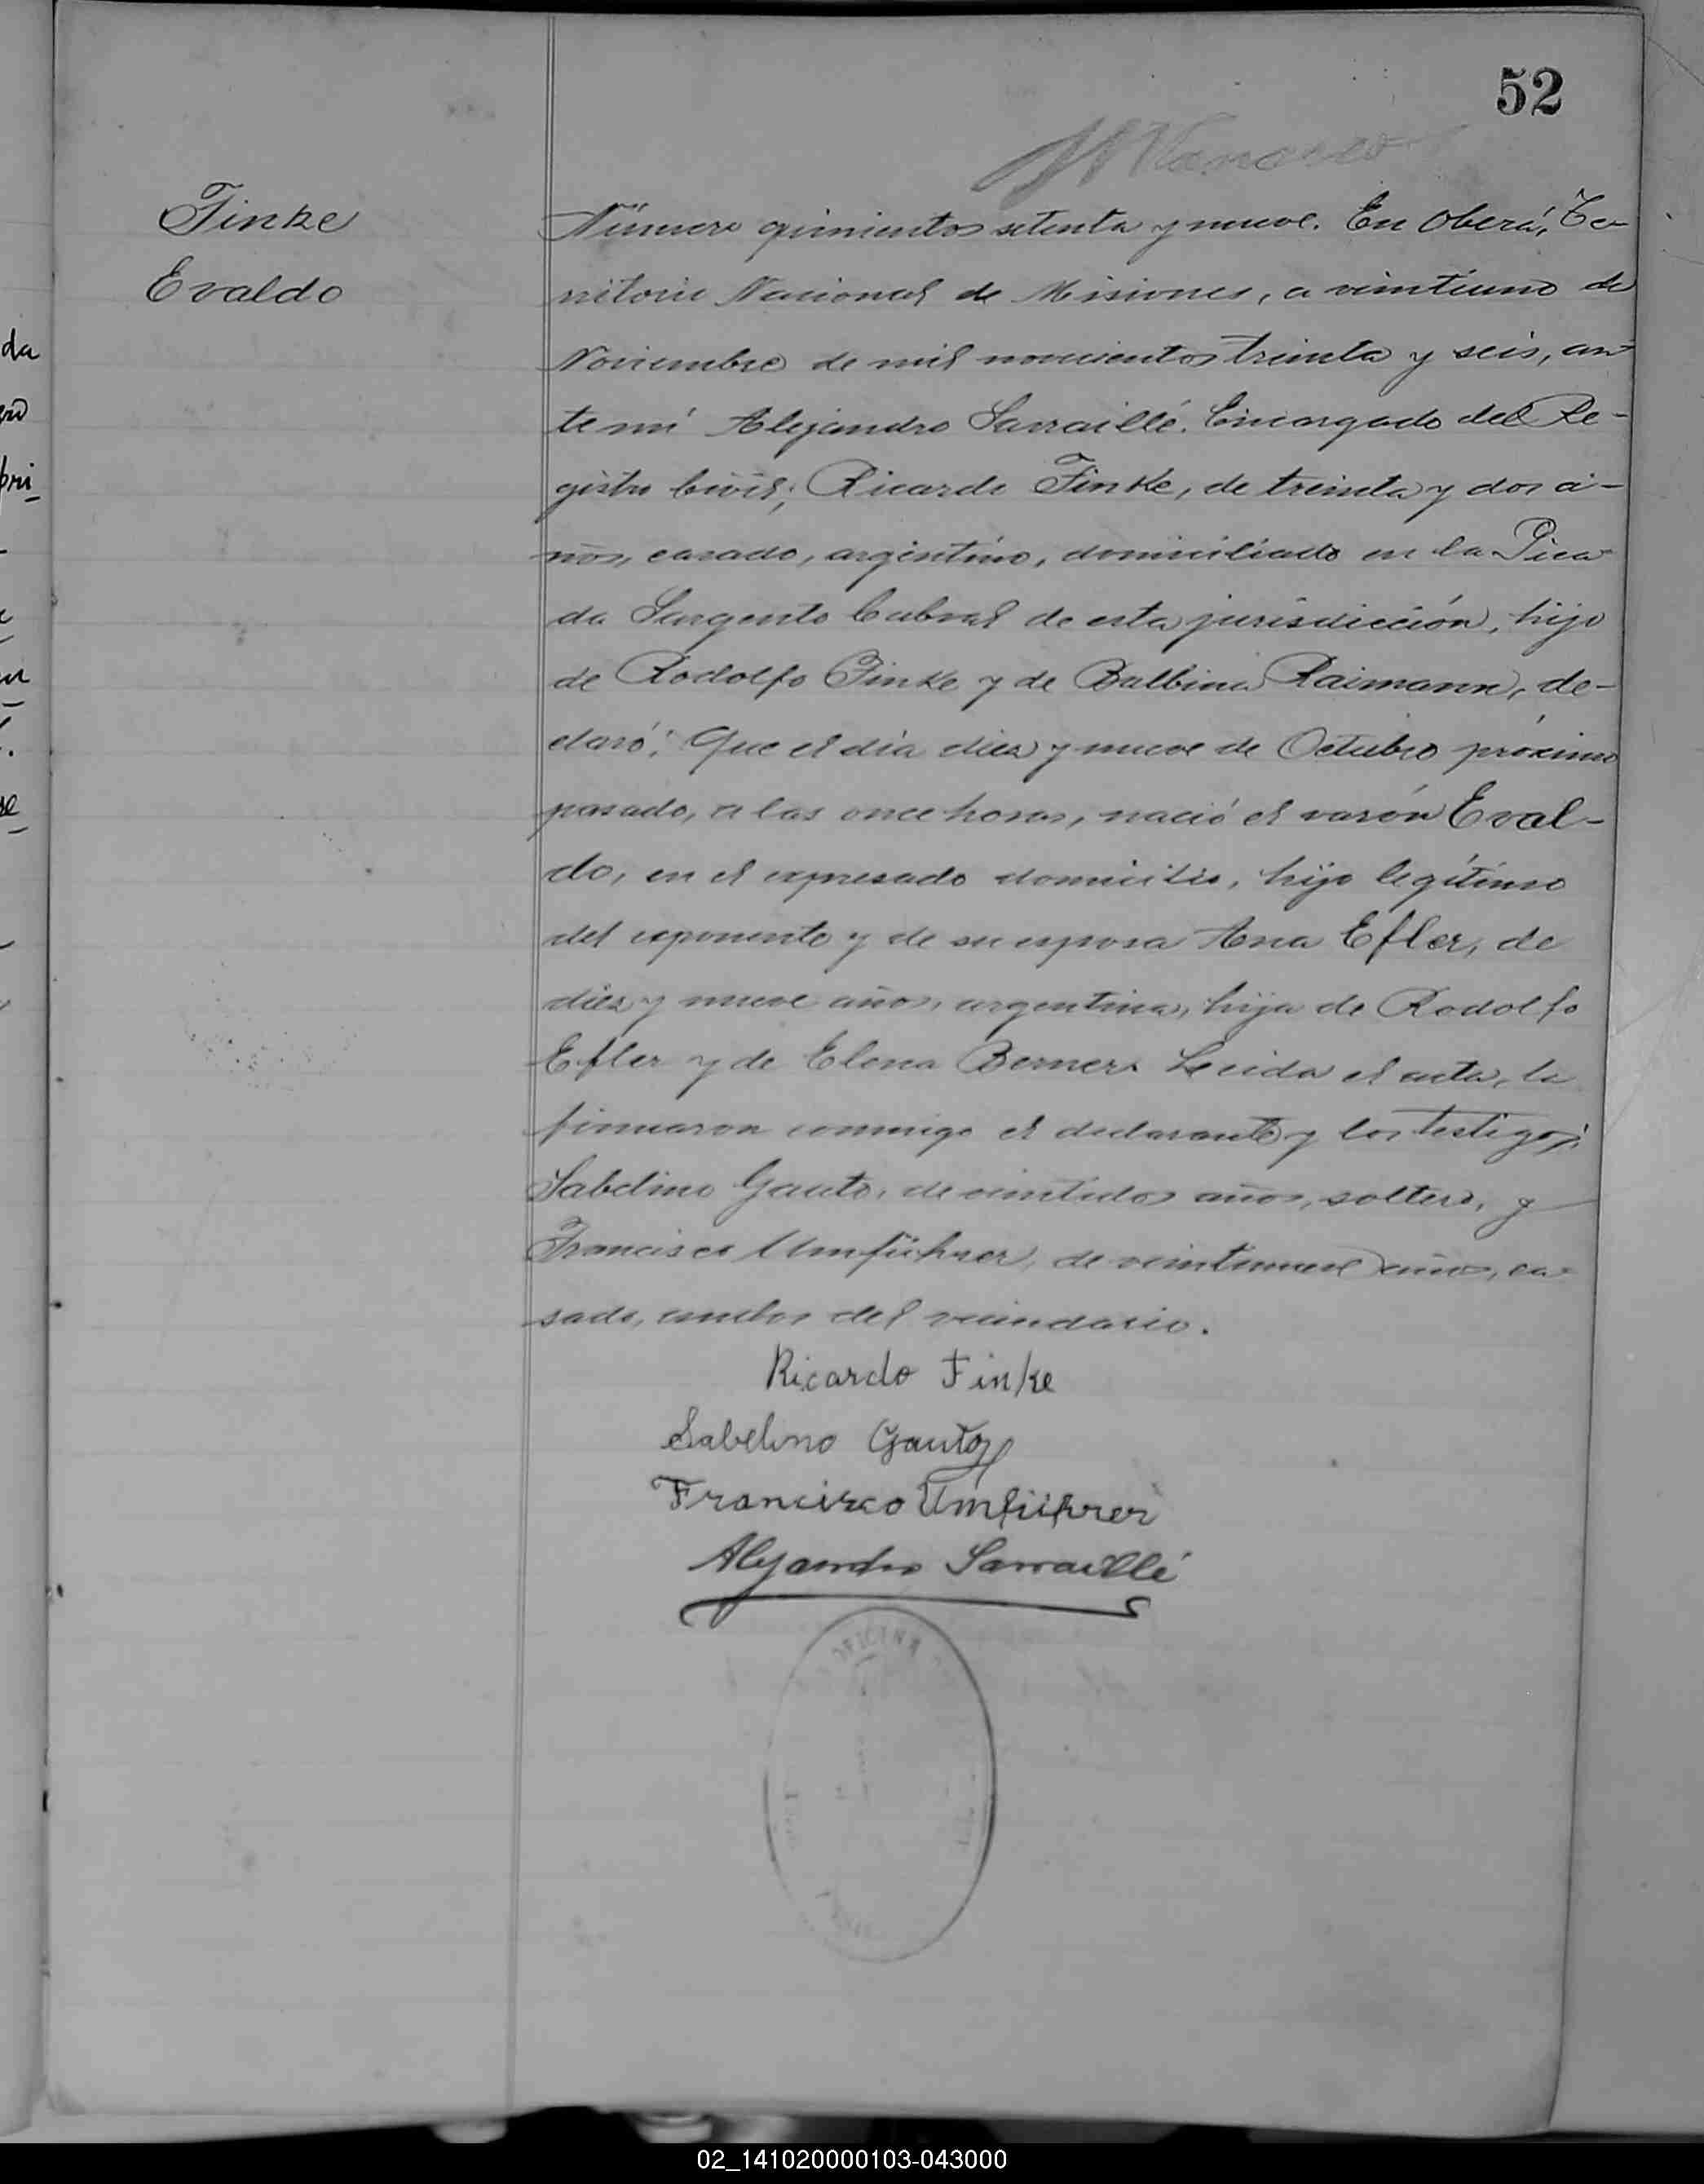 52
Finke
Evaldo
Número quinientos setenta y nueve. En Oberá, Te-
rritorio Nacional de Misiones, a veintiuno de
Noviembre de mil novecientos treinta y seis, an-
te mí Alejandro Sarraillé. Encargado del Re-
gistro Civil; Ricardo Finke, de treinta y dos a-
ños, casado, argentino, domiciliado en la Pica-
da Sargento Cabral de esta jurisdicción, hijo
de Rodolfo Finke y de Balbina Raimann, de-
claró: Que el día diez y nueve de Octubre próximo
pasado, a las once horas, nació el varón Eval-
do, en el expresado domicilio, hijo legítimo
del exponente y de su esposa Ana Efler, de
diez y nueve años, argentina, hija de Rodolfo
Efler y de Elena Berner. Leída el acta, la
firmaron conmigo el declarante y los testigos:
Sabelino Gauto, de veintidos años, soltero, y
Francisco Umführer, de veintinueve años, ca-
sado, ambos del vecindario.
Ricardo Finke
Sabelino Gauto
Francisco Umführer
Alejandro Sarraillé
OFICINA
02_141020000103-043000